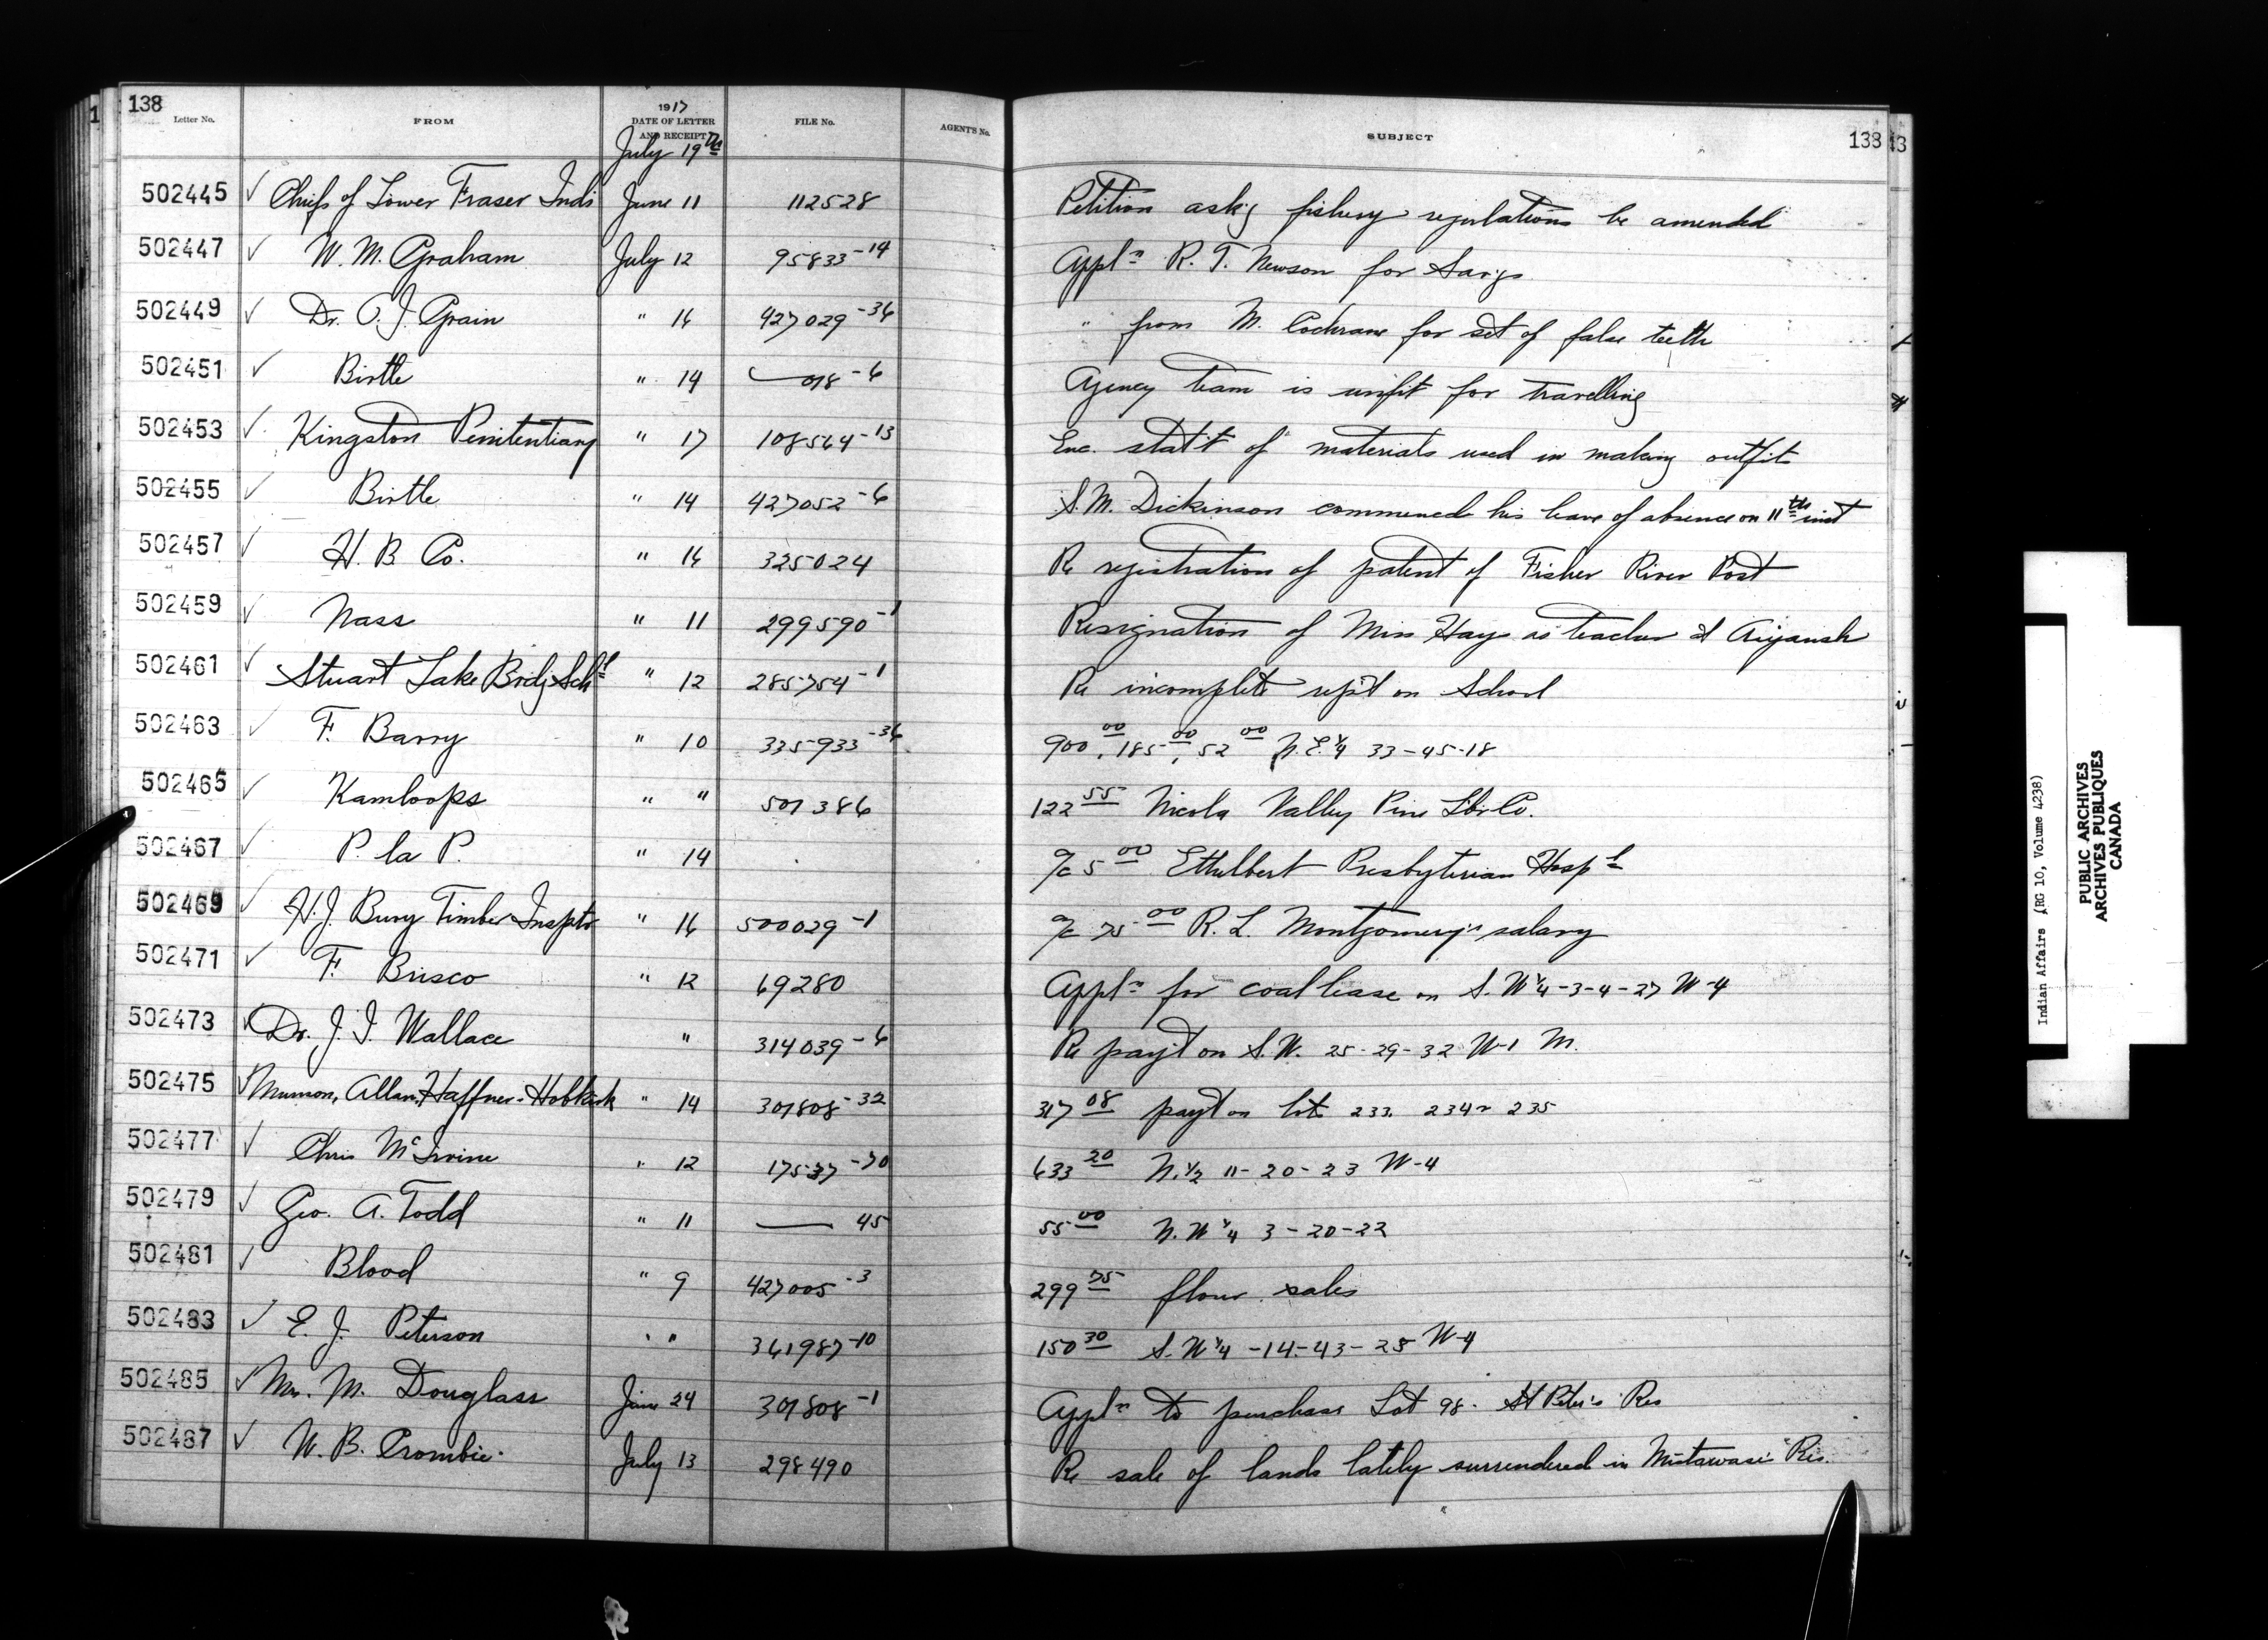 138
Letter No. FROM 1917 DATE OF LETTER AND RECEIPT FILE No. AGENT'S No. SUBJECT 138
July 19th
502445 ✓ Chiefs of Lower Fraser Inds June 11 112528 Petition ask'g fishery regulations be amended
502447 ✓ W. M. Graham July 12 95833-14 Appln R. T. Newson for Sav'gs
502449 ✓ Dr. O. J. Grain " 16 427029-36 " from M. Cochrane for set of false teeth
502451 ✓ Birtle " 14 — 018-6 Agency team is unfit for travelling
502453 ✓ Kingston Penitentiary " 17 108564-13 Enc. stat't of materials used in making outfits
502455 ✓ Birtle " 14 427052-6 S. M. Dickinson commenced his leave of absence on 11th inst
502457 ✓ H. B. Co. " 16 325024 Re registration of patent of Fisher River Post
502459 ✓ Nass " 11 299590-1 Resignation of Miss Hay as teacher at Aiyansh
502461 ✓ Stuart Lake Brdg Schl " 12 285754-1 Re incomplete rep't on School
502463 ✓ F. Barry " 10 335933-36 900 00, 185 00, 52 00 N.E. 1/4 33-45-18
502465 ✓ Kamloops " " 501386 122 55 Nicola Valley Pine L'br Co.
502467 ✓ P. la P. " 14 a/c 5 00 Ethelbert Presbyterian Hospl
502469 ✓ H. J. Bury Timber Insptr " 16 500029-1 a/c 75 00 R. L. Montgomery's salary
502471 ✓ F. Brisco " 12 69280 Appln for coal lease on S. W 1/4-3-4-27 W-4
502473 ✓ Dr. J. I. Wallace " 314039-6 Re pay't on S. W. 25-29-32 W-1 M.
502475 ✓ Munson, Allan, Haffner & Hobkirk " 14 301808-32 317 08 payt on lots 233, 234 & 235
502477 ✓ Chris McIrvine " 12 17537-70 633 20 N. 1/2 11-20-23 W-4
502479 ✓ Geo. A. Todd " 11 — 45 55 00 N. W 1/4 3-20-22
502481 ✓ Blood " 9 427005-3 299 75 flour sales
502483 ✓ E. J. Peterson " " 361987-10 150 30 S. W 1/4 -14-43-25 W-4
502485 ✓ Mrs. M. Douglass June 24 301808-1 Appln to purchase Lot 98. St Peter's Res
502487 ✓ W. B. Crombie. July 13 298490 Re sale of lands lately surrendered in Mistawasis Res.
Indian Affairs (RG 10, Volume 4238)
PUBLIC ARCHIVES
ARCHIVES PUBLIQUES
CANADA